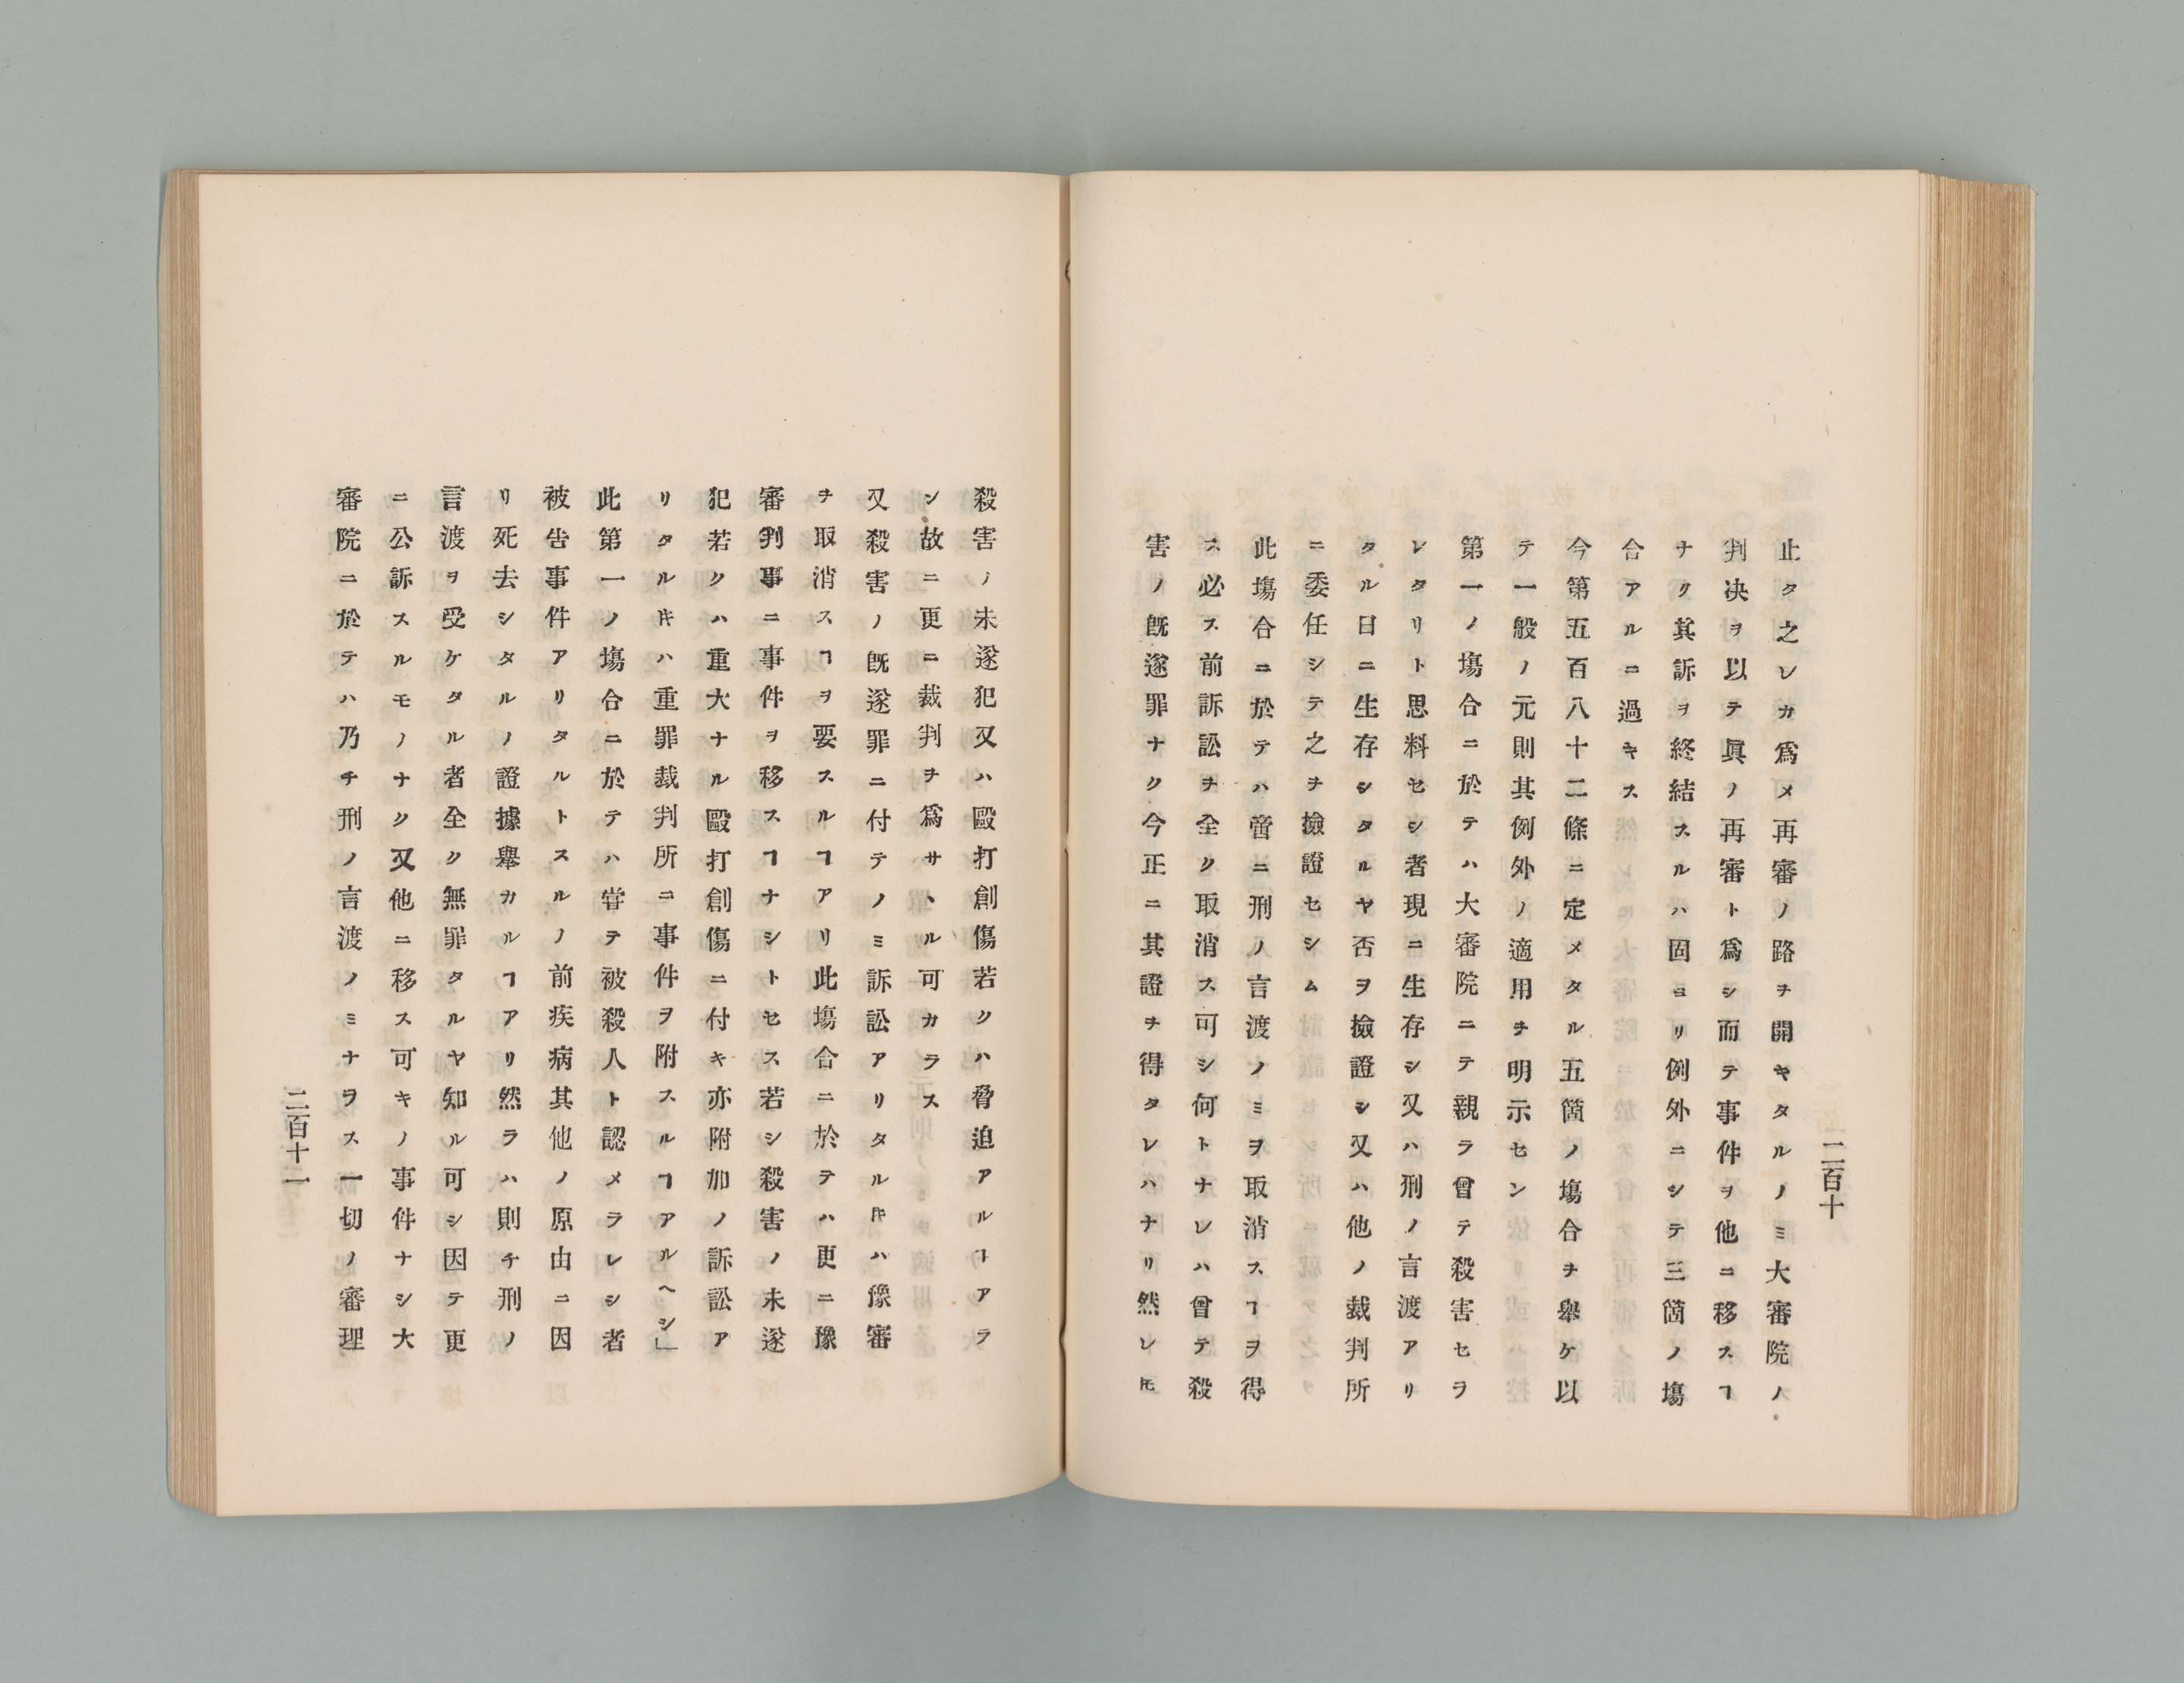 止タ之レカ爲メ再審ノ路チ開キタルノミ大審院ノ
判决ヲ以テ眞ノ再審ト爲シ而テ事件ヲ他ニ移スヿ
ナク其訴ヲ終結スルハ固ヨリ例外ニシテ三箇ノ塲
合アルニ過キス
今第五百八十二條ニ定メタル五箇ノ塲合チ舉ケ以
テ一般ノ元則其例外ノ適用チ明示セン
第一ノ塲合ニ於テハ大審院ニテ親ラ曾テ殺害セラ
レタリト思料セシ者現ニ生存シ又ハ刑ノ言渡アリ
タル日ニ生存シタルヤ否ヲ撿證シ又ハ他ノ裁判所
ニ委任シテ之ヲ撿證セシム
此塲合ニ於テハ啻ニ刑ノ言渡ノミヲ取消スヿヲ得
ス必ス前訴訟チ全ク取消ス可シ何トナレハ曾テ殺
害ノ既遂罪ナク今正ニ其證チ得タレハナリ然レ𪜈
二百十
殺害ノ未遂犯又ハ毆打創傷若クハ脅迫アルヿアラ
ン故ニ更ニ裁判ヲ爲サヽル可カラス
又殺害ノ既遂罪ニ付テノミ訴訟アリタルキハ豫審
ヲ取消スヿヲ要スルヿアリ此塲合ニ於テハ更ニ豫
審判事ニ事件ヲ移スヿナシトセス若シ殺害ノ未遂
犯若クハ重大ナル毆打創傷ニ付キ亦附加ノ訴訟ア
リタルキハ重罪裁判所ニ事件ヲ附スルヿアルヘシ」
此第一ノ塲合ニ於テハ甞テ被殺人ト認メラレシ者
被告事件アリタルトスルノ前疾病其他ノ原由ニ因
リ死去シタルノ證據舉カルヿアリ然ラハ則チ刑ノ
言渡ヲ受ケタル者全ク無罪タルヤ知ル可シ因テ更
ニ公訴スルモノナク又他ニ移ス可キノ事件ナシ大
審院ニ於テハ乃チ刑ノ言渡ノミナラス一切ノ審理
二百十一